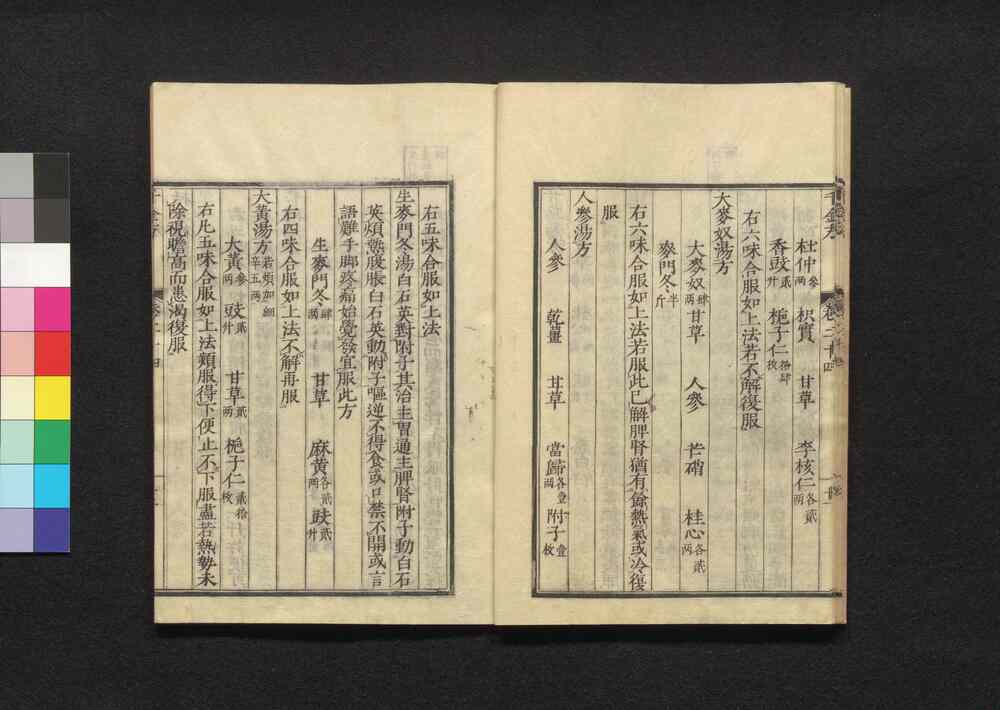 杜仲叁兩 枳實 甘草 李核仁各貳兩
香豉貳升 梔子仁拾肆枚
右六味合服如上法若不解復服
大麥奴湯方
大麥奴肆兩 甘草 人參 芒硝 桂心各貳兩
麥門冬半斤
右六味合服如上法若服此已解脾腎猶有餘熱氣或冷復
服
人參湯方
人參 乾薑 甘草 當歸各壹兩 附子壹枚
右五味合服如上法
生麥門冬湯白石英對附子其治主胃通主脾腎附子動白石
英煩熱腹脹白石英動附子嘔逆不得食或口禁不開或言
語難手脚疼痛始覺發宜服此方
生麥門冬肆兩 甘草 麻黃各貳兩 豉貳升
右四味合服如上法不解再服
大黃湯方若煩加細辛五兩
大黃叁兩 豉貳升 甘草貳兩 梔子仁貳拾枚
右凡五味合服如上法頻服得下便止不下服盡若熱勢未
除視瞻高而患渴復服